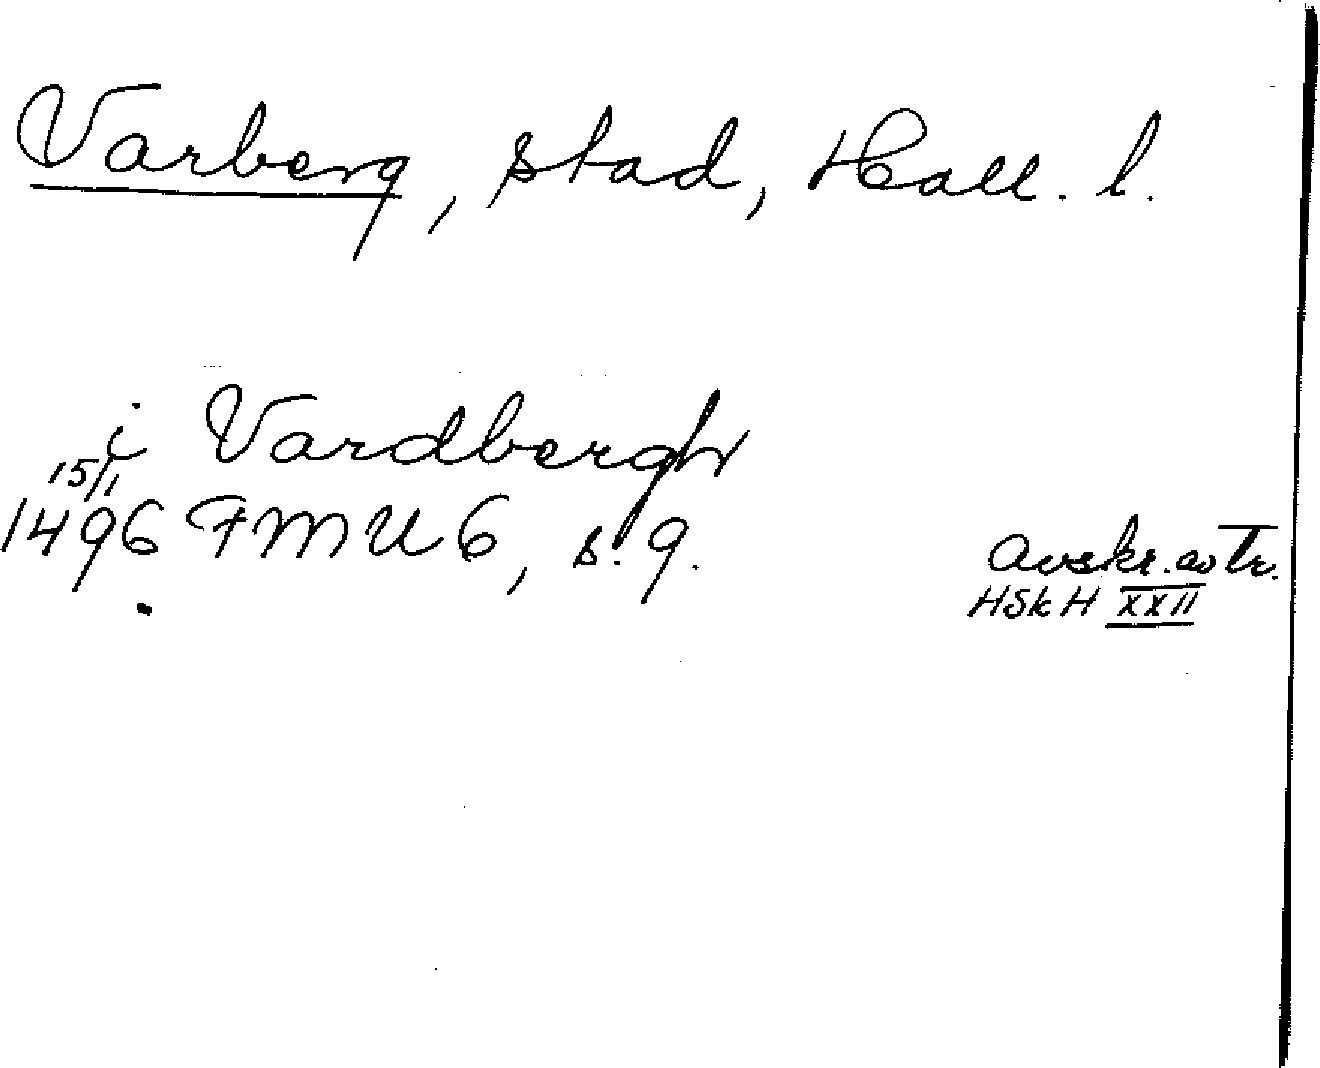 Varberg, stad, Hall. l.
i Vardbergh
15/1
1496 FMU 6, s. 9.
Avskr. av Tr.
HSkH XXII